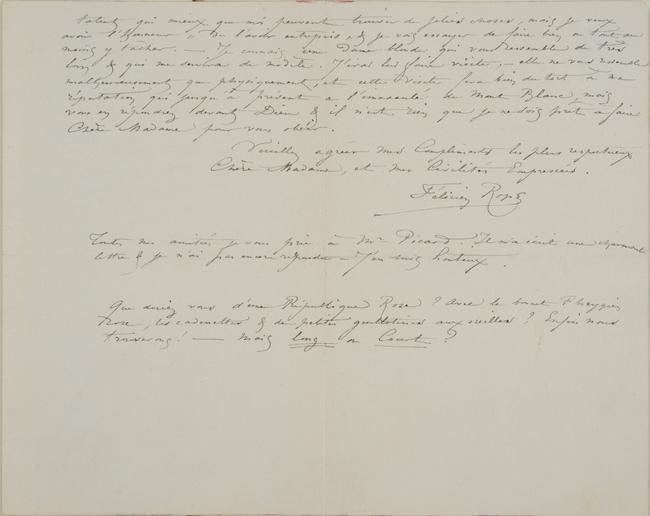 talent qui mieux que moi peuvent trouver de jolies choses, mais je veux
avoir l'honneur de l'avoir entrepris, & je vais essayer de faire bien ou tout au
moins y tâcher. — Je connais une Dame blonde, qui vous ressemble de très
loin, & qui me servira de modèle. J'irai lui faire visite; — elle ne vous ressemble
malheureusement que physiquement, et cette visite fera bien du tort à ma
réputation qui jusqu'à présent a l'immaculé du Mont Blanc, mais
vous en répondrez devant Dieu & il n'est rien que je ne sois prêt à faire
Chère Madame pour vous obéir.
Veuillez agréer mes Compliments les plus respectueux
Chère Madame, et mes Civilités Empressées.
Félicien Rops
Toutes mes amitiés je vous prie à Mr Picard. Il m'a écrit une charmante
lettre & je n'ai pas encore répondu. J'en suis honteux.
Que diriez vous d'une République Rose? Avec le bonnet Phrygien
rose, les cadenettes & de petites guillotines aux oreilles? Enfin nous
trouverons! — Mais long ou Court?